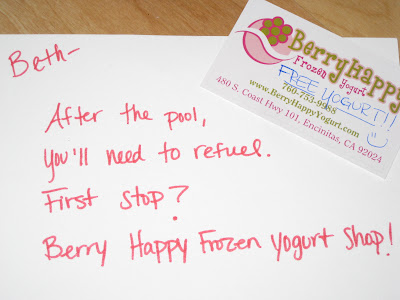 Beth-
After the pool,
you'll need to refuel.
First stop?
Berry Happy Frozen Yogurt Shop!
BerryHappy
Frozen Yogurt
FREE YOGURT!!
760-753-9988
www.BerryHappyYogurt.com
480 S. Coast Hwy 101, Encinitas, CA 92024